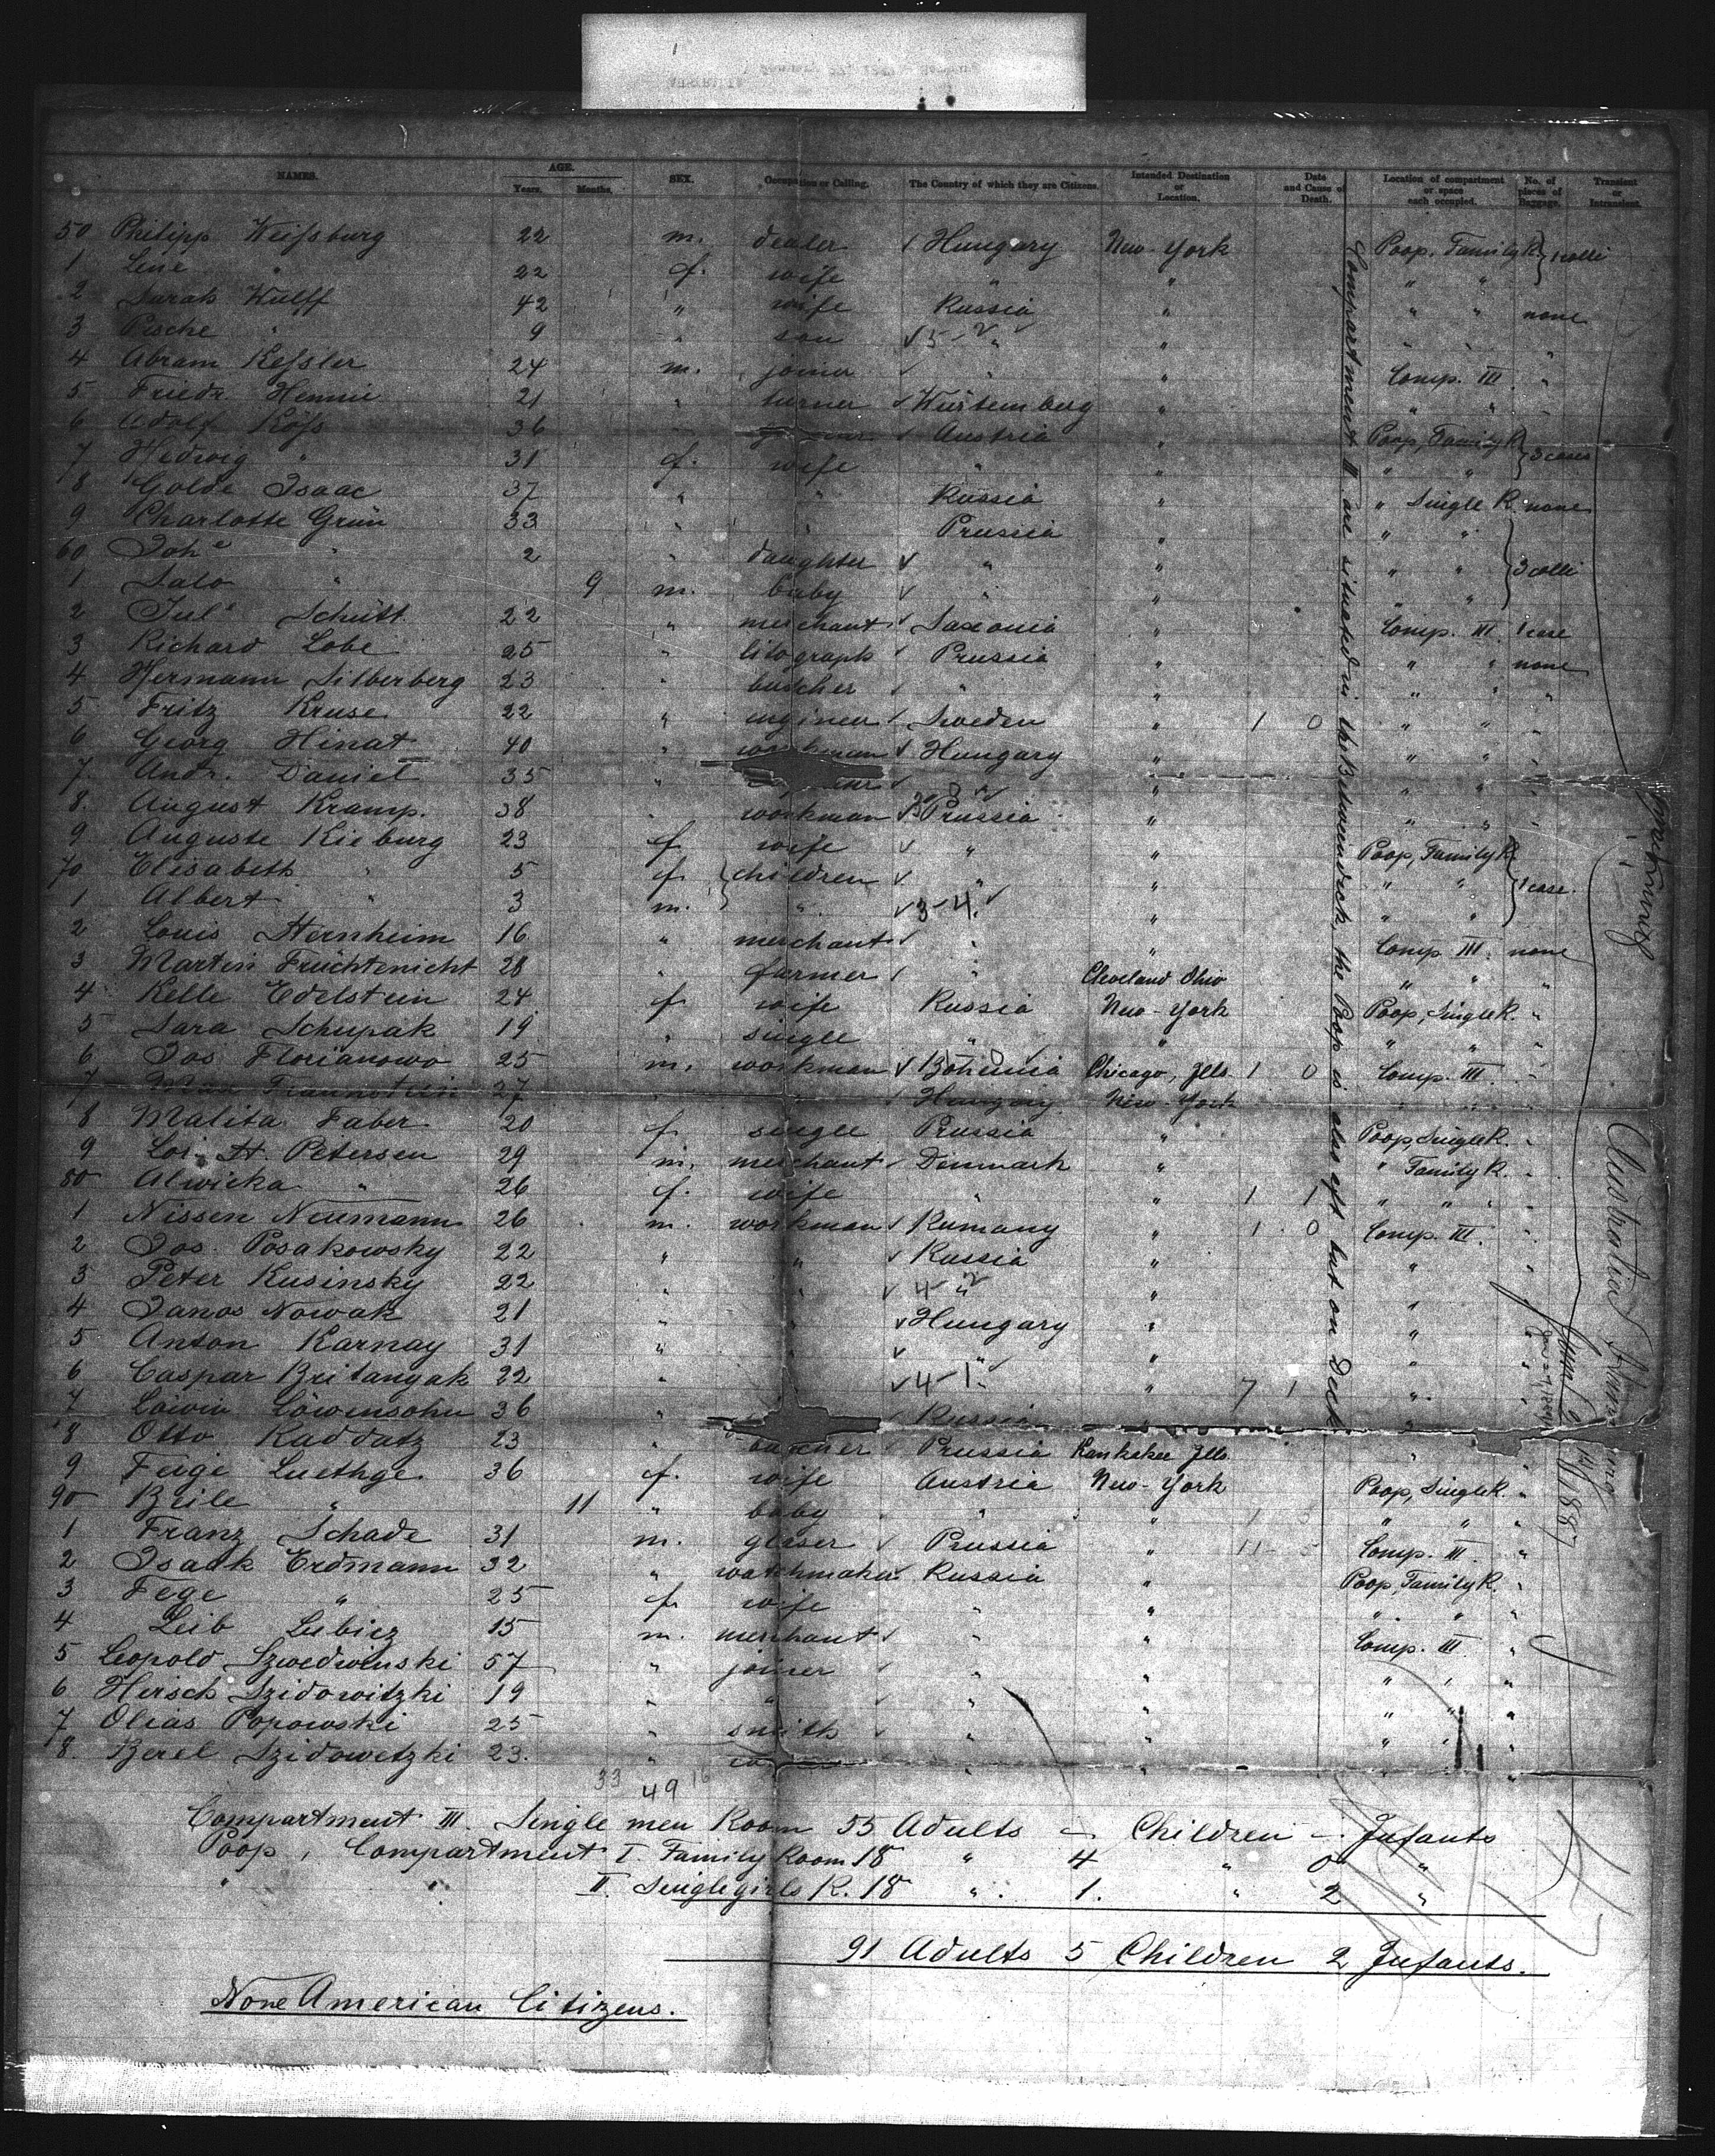 NAMES. AGE. Years. Months. SEX. Occupation or Calling. The Country of which they are Citizens. Intended Destination or Location. Date and Cause of Death. Location of compartment or space each occupied. No. of pieces of Baggage. Transient or Intransient.
50 Philipp Weissburg 22 m. dealer ✓ Hungary New-York Poop. Family R. } 1 colli
1 Line " 22 f. wife " " " "
2 Sarah Wulff 42 " wife Russia " " " none
3 Pesche " 9 " son ✓ 5-2 ✓ " " " " "
4 Abram Kessler 24 m. joiner ✓ " " Comp. III "
5 Friedr. Hennie 21 " turner ✓ Würtemberg " " " "
6 Adolf Köss 36 " ✓ Austria " Poop, Family R. } 3 cases
7 Hedwig " 31 f. wife " " " "
8 Golde Isaac 37 " " Russia " " Single R. none
9 Charlotte Grün 33 " " Prussia " " " } 3 colli
60 Johe " 2 " daughter ✓ " " " "
1 Salo " 9 m. baby ✓ " " " "
2 Juls Schütt 22 " merchant ✓ Saxonia " Comp. III. 1 case
3 Richard Lobe 25 " litograph ✓ Prussia " " " none
4 Hermann Silberberg 23 " butcher ✓ " " " " "
5 Fritz Kruse 22 " engineer ✓ Sweden " 1 0 " " "
6 Georg Hinat 40 " workman ✓ Hungary " " " "
7 Andr. Daniel 35 " ✓ " " " "
8. August Kramp. 38 " workman ✓ Prussia " " " "
9 Auguste Kieburg 23 f. wife ✓ " " Poop, Family R. } 1 case.
70 Elisabeth " 5 f. } children ✓ " " " "
1 Albert " 3 m. } " ✓ 3-4. ✓ " " "
2 Louis Sternheim 16 " merchant ✓ " " Comp. III. none
3 Martin Früchtenicht 28 " farmer ✓ " Cleveland Ohio " " "
4 Kelle Edelstein 24 f. wife Russia New-York Poop, Single R. "
5 Sara Schupak 19 " single " " " " "
6 Jos. Florianowo 25 m. workman ✓ Bohemia Chicago, Jlls. 1 0 Comp. III. "
7 27 " " ✓ Hungary New-York " " "
8 Malita Faber 20 f. single Prussia " Poop, Single R. "
9 Loi. H. Petersen 29 m. merchant ✓ Dinmark " " Family R. "
80 Alwicka " 26 f. wife " " 1 1 " " "
1 Nissen Neumann 26 m. workman ✓ Rumany " 1 0 Comp. III. "
2 Jos. Posakowsky 22 " " ✓ Russia " " "
3 Peter Kusinsky 22 " " ✓ 4-2 " " "
4 Janos Nowak 21 " " ✓ Hungary " " "
5 Anton Karnay 31 " " ✓ " " " "
6 Caspar Britanyak 22 " " ✓ 4-1 ✓ " 7 1 " "
7 Löwensohn 36 " ✓ Russia " " "
8 Otto Raddatz 23 " ✓ Prussia Kankakee Jlls. " "
9 Feige Luethge 36 f. wife Austria New-York Poop, Single R. "
90 Brile " 11 " baby " " " " "
1 Franz Schade 31 m. glaser ✓ Prussia " Comp. III. "
2 Isaak Erdmann 32 " watchmaker Russia " Poop, Family R. "
3 Fege " 25 f. wife " " " " "
4 Leib Lubicz 15 m. merchant ✓ " " Comp. III. "
5 Leopold Szwedwinski 57 " joiner ✓ " " " " "
6 Hirsch Szidowitzki 19 " " ✓ " " " " "
7 Olias Popowski 25 " smith ✓ " " " " "
8. Berel Szidowetzki 23. " " " "
33 49 16
Compartment III. Single men Room 55 Adults - Children - Infants
Poop, Compartment I. Family Room 18 " 4 " 0 "
" " II. Singlegirls R. 18 " 1. " 2 "
91 Adults 5 Children 2 Infants.
None American Citizens.
Compartment III are situated in the Betweendeck, the Poop is also aft but on Deck
June 14/1887